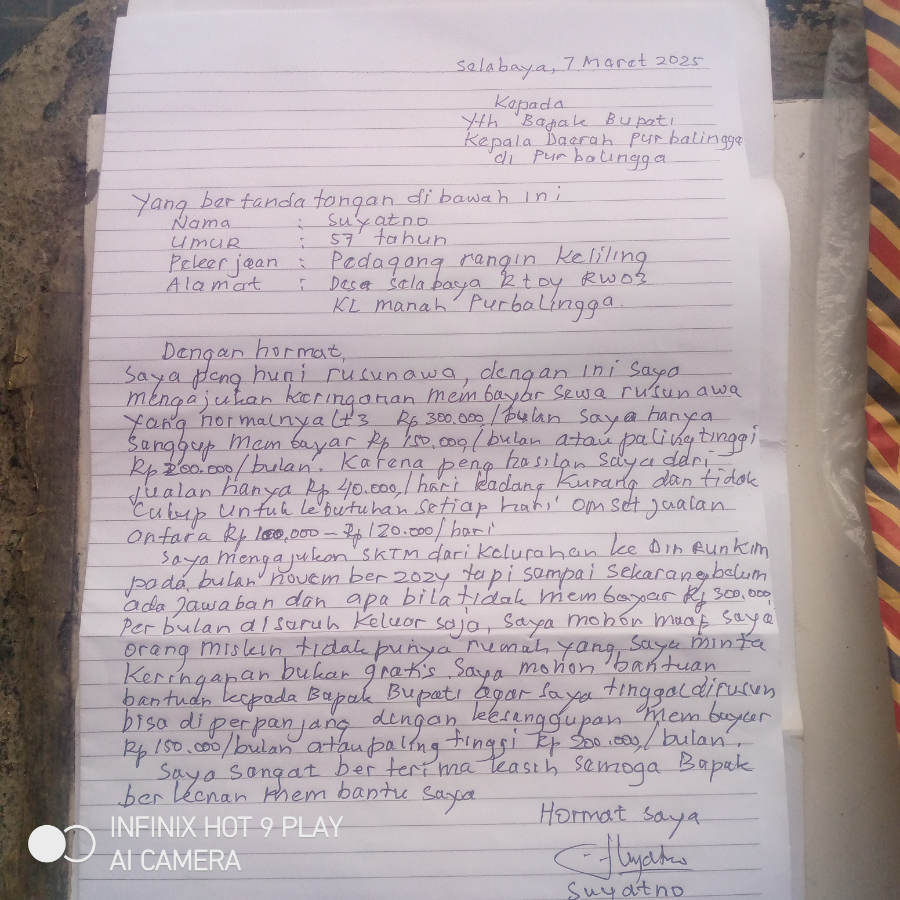 Selabaya, 7 Maret 2025
Kepada
Yth Bapak Bupati
Kepala Daerah Purbalingga
di Purbalingga
Yang bertanda tangan di bawah ini
Nama : Suyatno
Umur : 57 tahun
Pekerjaan : Pedagang rangin keliling
Alamat : Desa Selabaya Rt04 RW03
KL manah Purbalingga.
Dengan hormat,
Saya penghuni rusunawa, dengan ini saya
mengajukan keringanan membayar sewa rusunawa
yang normalnya lt3 Rp 300.000/bulan saya hanya
sanggup membayar Rp 150.000/bulan atau paling tinggi
Rp 200.000/bulan. Karena penghasilan saya dari
jualan hanya Rp 40.000,/hari kadang kurang dan tidak
cukup untuk kebutuhan setiap hari omset jualan
antara Rp 100.000 - Rp 120.000/hari
Saya mengajukan SKTM dari Kelurahan ke Dinrunkim
pada bulan november 2024 tapi sampai sekarang belum
ada jawaban dan apabila tidak membayar Rp 300.000
per bulan disuruh keluar saja, saya mohon maaf saya
orang miskin tidak punya rumah yang saya minta
keringanan bukan gratis. Saya mohon bantuan
bantuan kepada Bapak Bupati agar saya tinggal dirusun
bisa diperpanjang dengan kesanggupan membayar
Rp 150.000/bulan atau paling tinggi Rp 200.000,/bulan.
Saya sangat berterima kasih semoga Bapak
berkenan membantu saya
Hormat saya
Suyatno
INFINIX HOT 9 PLAY
AI CAMERA